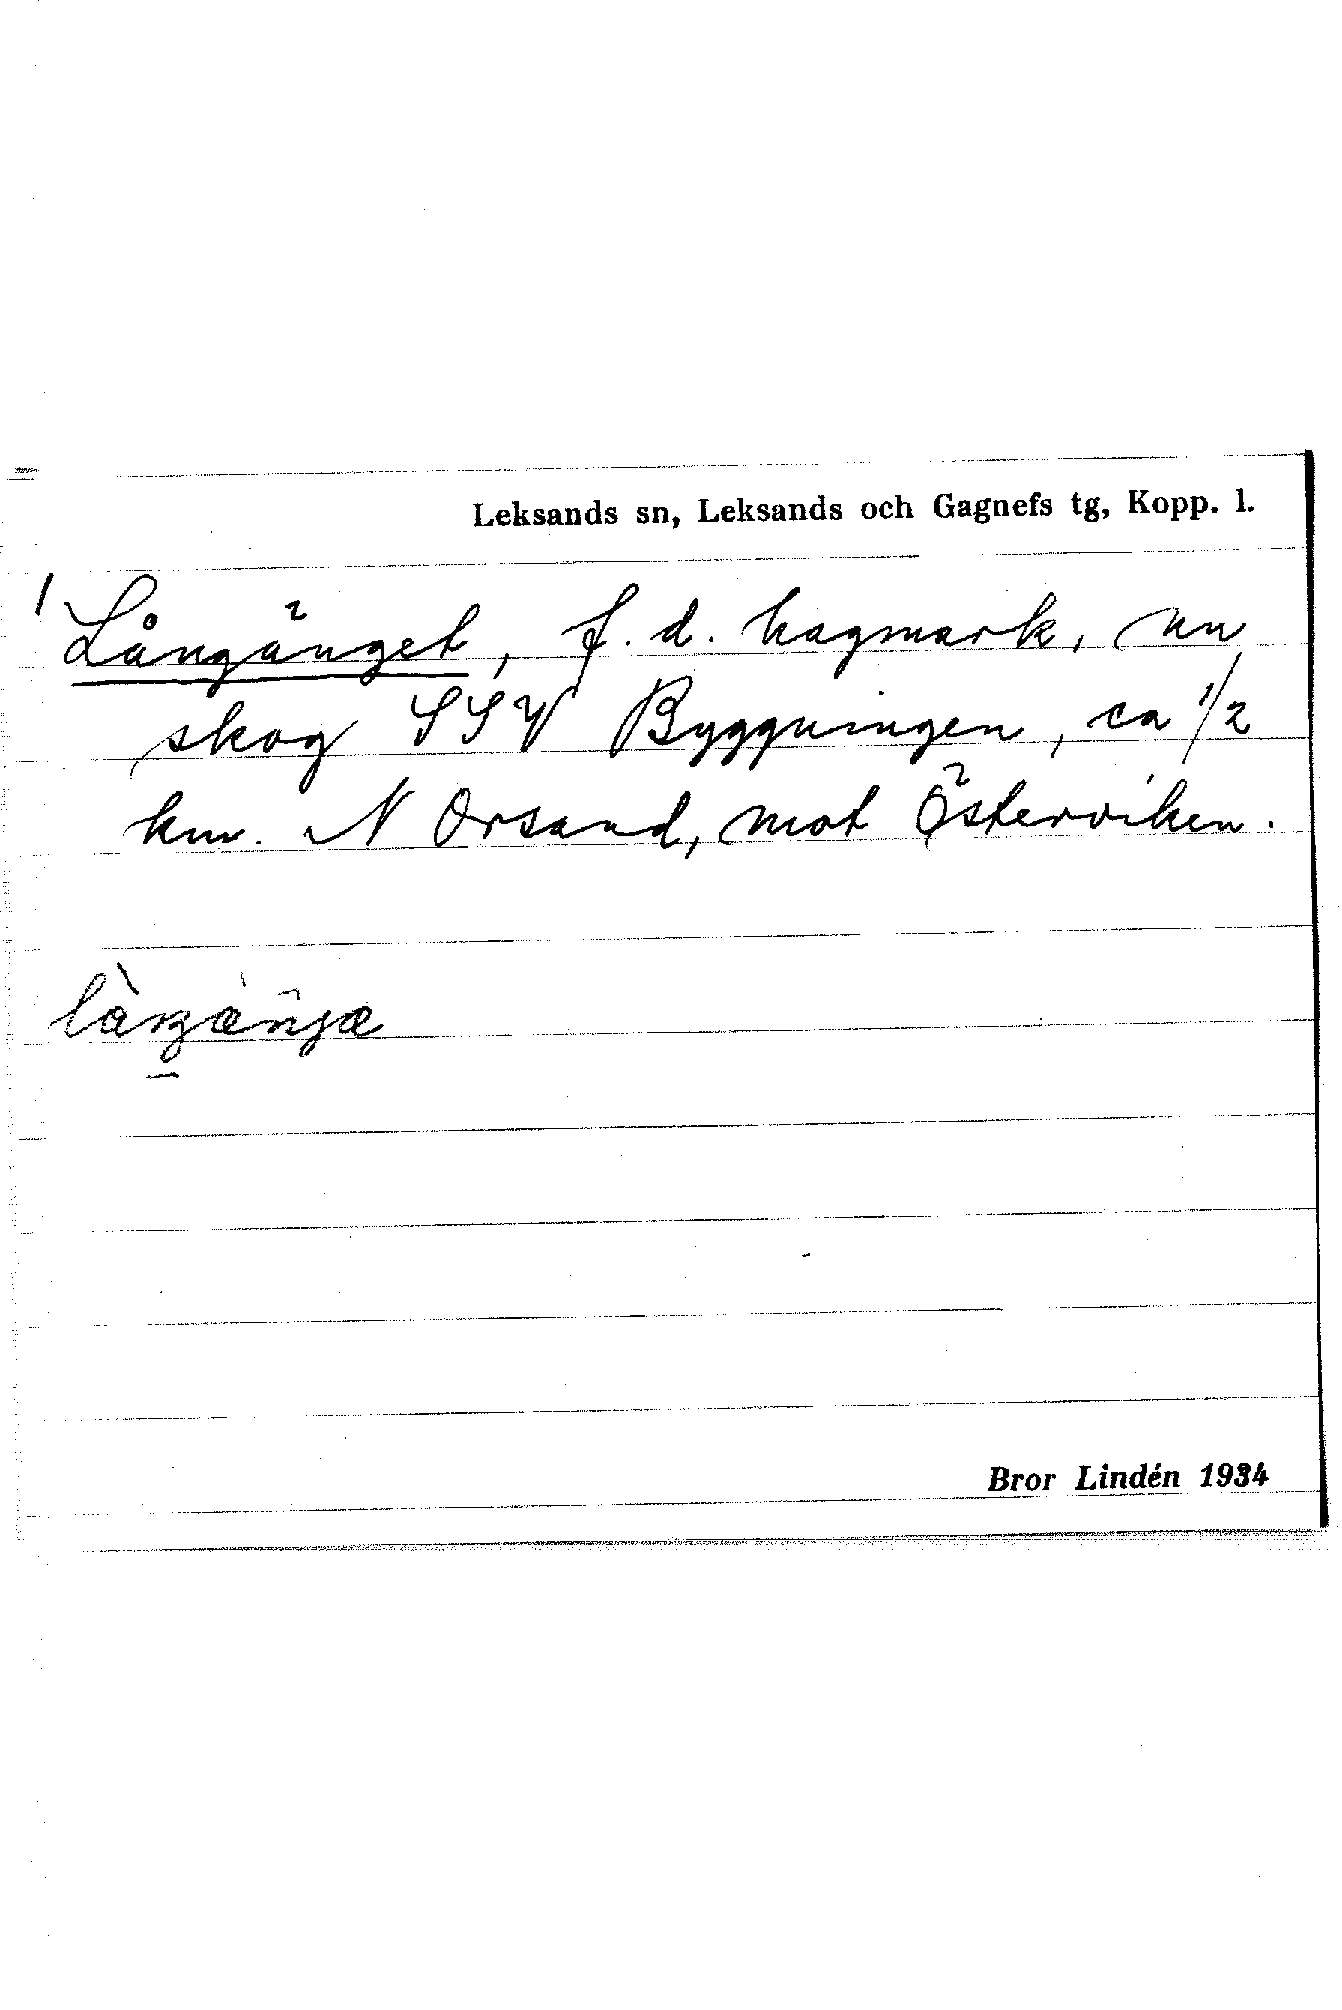 Leksands sn, Leksands och Gagnefs tg, Kopp. l.
1 Långänget, f.d. hagmark, nu
skog SSV Byggningen, ca 1/2
km. N Orsand, mot Österviken.
Bror Lindén 1934